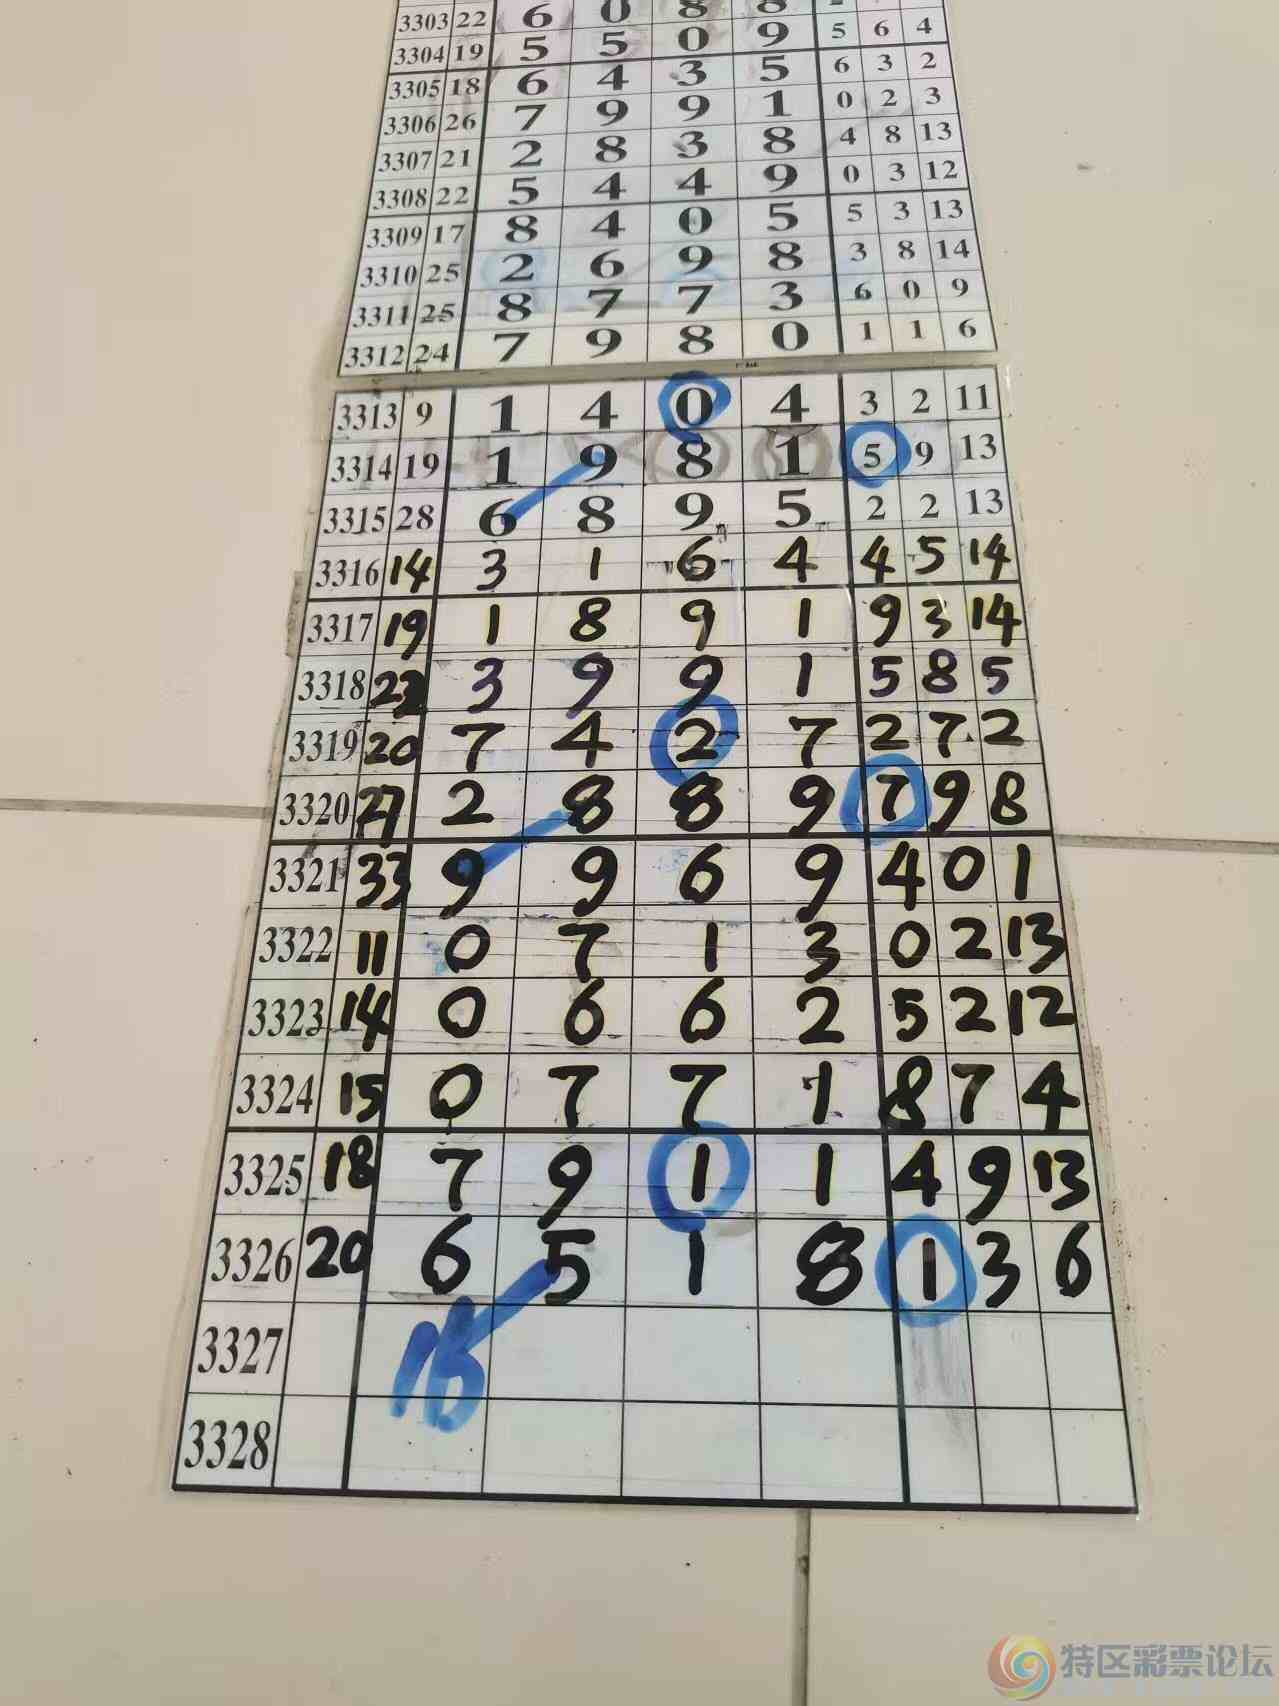 3303 22 6 0 8 8
3304 19 5 5 0 9 5 6 4
3305 18 6 4 3 5 6 3 2
3306 26 7 9 9 1 0 2 3
3307 21 2 8 3 8 4 8 13
3308 22 5 4 4 9 0 3 12
3309 17 8 4 0 5 5 3 13
3310 25 2 6 9 8 3 8 14
3311 25 8 7 7 3 6 0 9
3312 24 7 9 8 0 1 1 6
3313 9 1 4 0 4 3 2 11
3314 19 1 9 8 1 5 9 13
3315 28 6 8 9 5 2 2 13
3316 14 3 1 6 4 4 5 14
3317 19 1 8 9 1 9 3 14
3318 22 3 9 9 1 5 8 5
3319 20 7 4 2 7 2 7 2
3320 27 2 8 8 9 7 9 8
3321 33 9 9 6 9 4 0 1
3322 11 0 7 1 3 0 2 13
3323 14 0 6 6 2 5 2 12
3324 15 0 7 7 1 8 7 4
3325 18 7 9 1 1 4 9 13
3326 20 6 5 1 8 1 3 6
3327
3328
特区彩票论坛